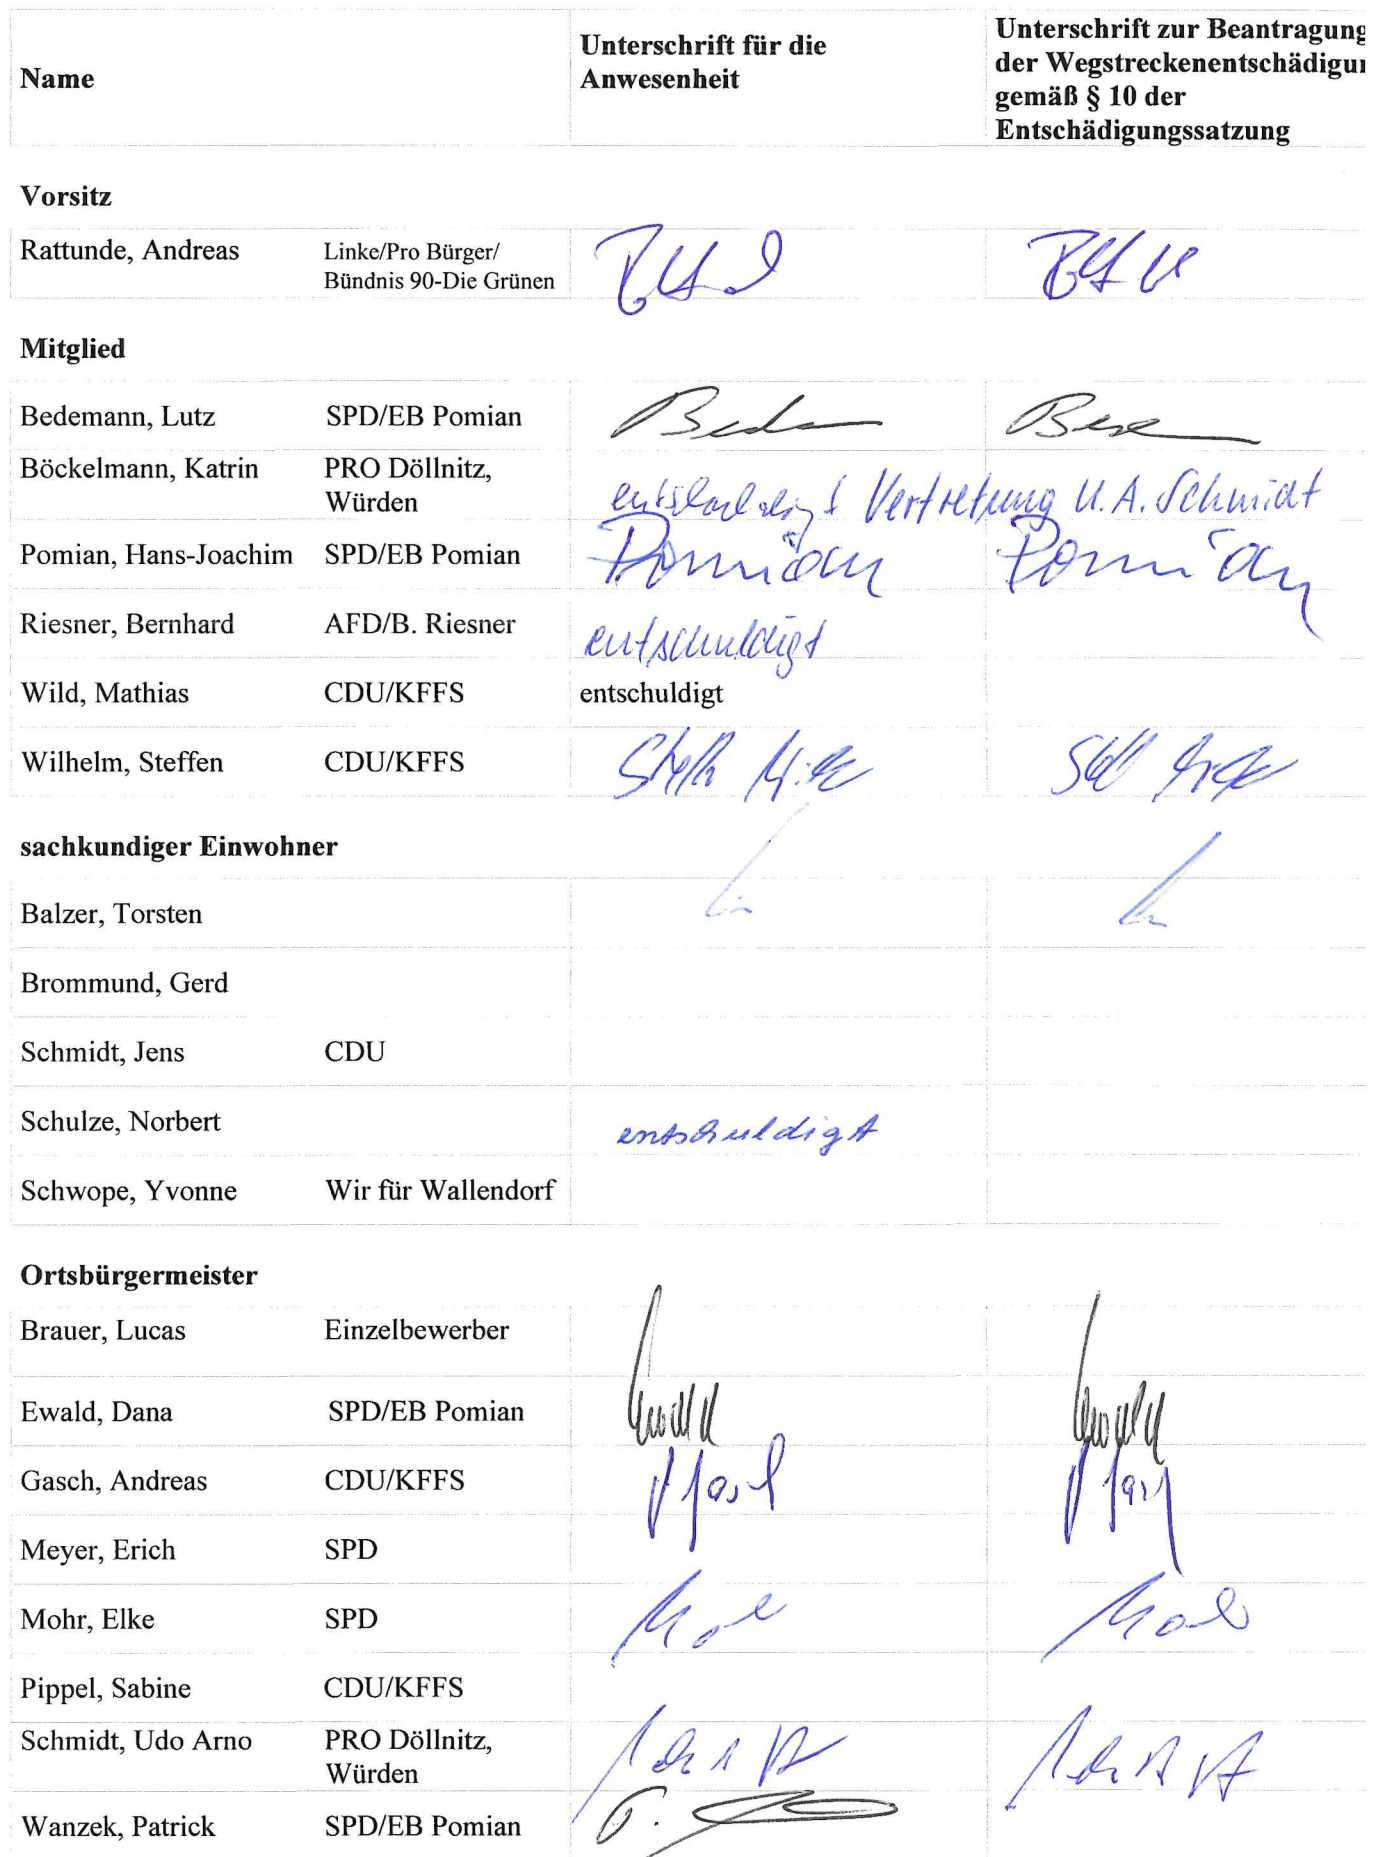 Name
Unterschrift für die
Anwesenheit
Unterschrift zur Beantragung
der Wegstreckenentschädigu
gemäß § 10 der
Entschädigungssatzung
Vorsitz
Rattunde, Andreas Linke/Pro Bürger/
Bündnis 90-Die Grünen
Mitglied
Bedemann, Lutz SPD/EB Pomian
Böckelmann, Katrin PRO Döllnitz,
Würden
entschuldigt Vertretung U.A. Schmidt
Pomian, Hans-Joachim SPD/EB Pomian Pomian Pomian
Riesner, Bernhard AFD/B. Riesner entschuldigt
Wild, Mathias CDU/KFFS entschuldigt
Wilhelm, Steffen CDU/KFFS
sachkundiger Einwohner
Balzer, Torsten
Brommund, Gerd
Schmidt, Jens CDU
Schulze, Norbert entschuldigt
Schwope, Yvonne Wir für Wallendorf
Ortsbürgermeister
Brauer, Lucas Einzelbewerber
Ewald, Dana SPD/EB Pomian
Gasch, Andreas CDU/KFFS
Meyer, Erich SPD
Mohr, Elke SPD
Pippel, Sabine CDU/KFFS
Schmidt, Udo Arno PRO Döllnitz,
Würden
Wanzek, Patrick SPD/EB Pomian